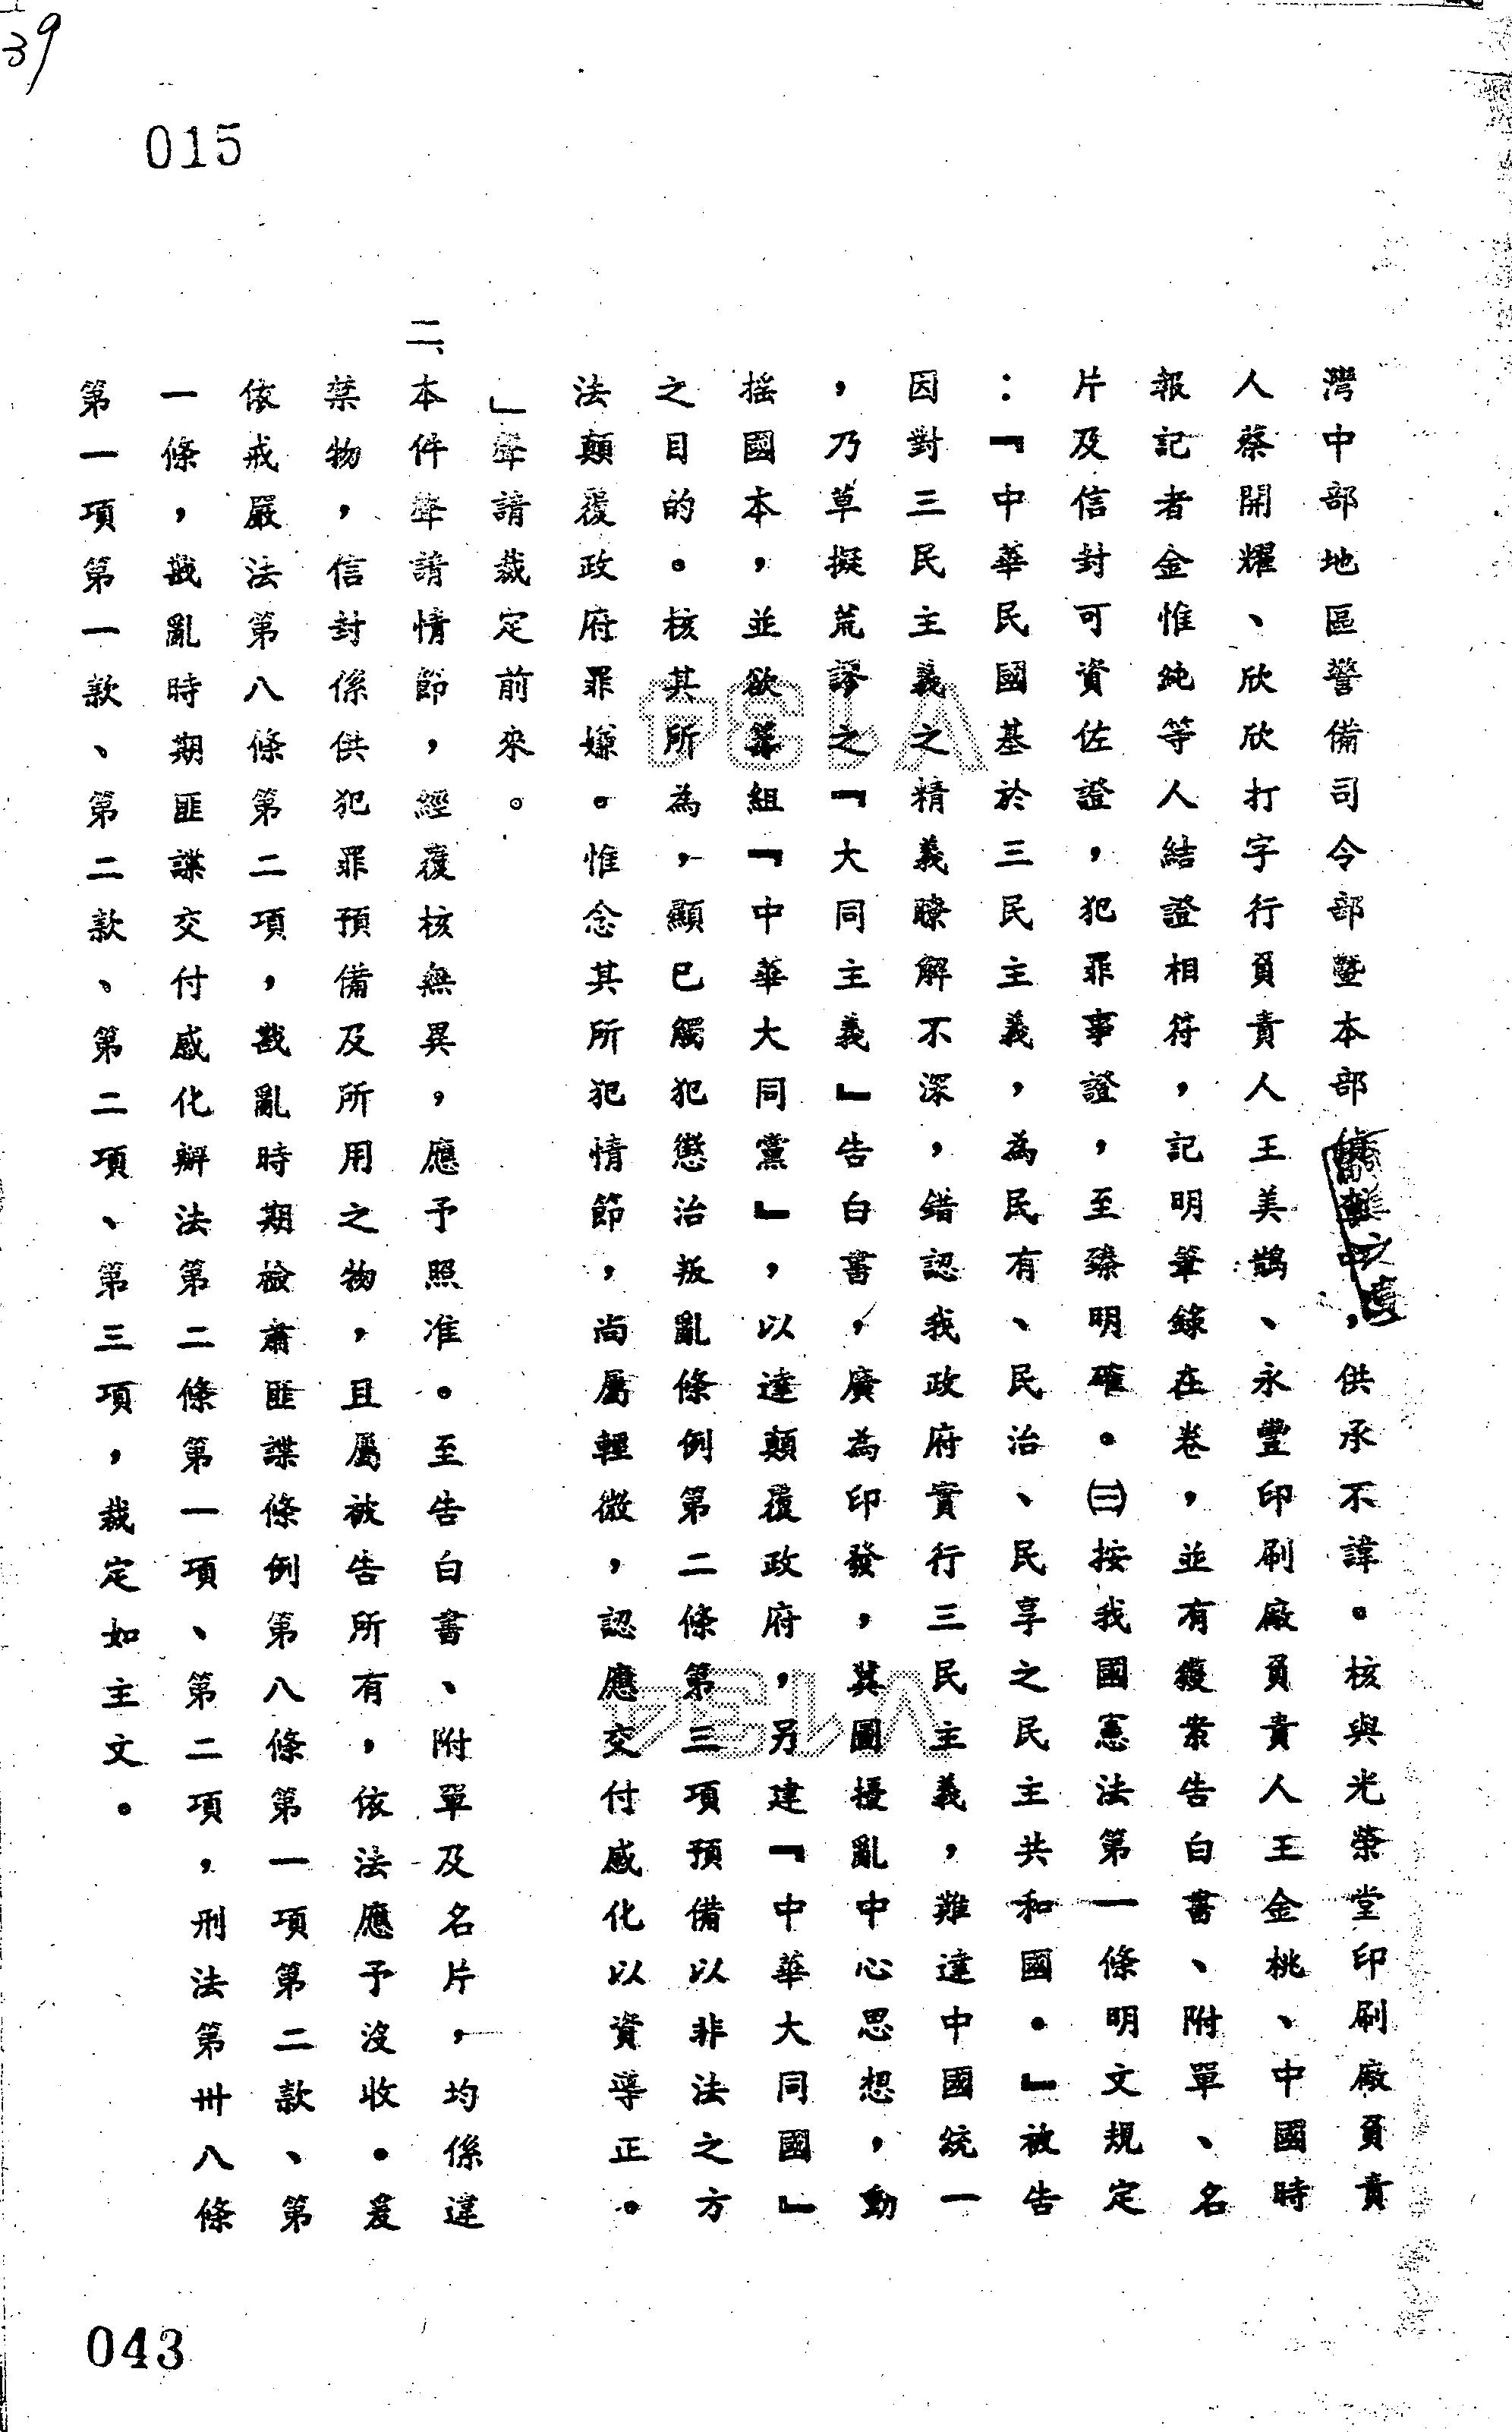 39
015
灣中部地區警備司令部暨本部偵訊中，供承不諱。核與光榮堂印刷廠負責
人蔡開耀、欣欣打字行負責人王美鵲、永豐印刷廠負責人王金桃、中國時
報記者金惟純等人結證相符，記明筆錄在卷，並有獲案告白書、附單、名
片及信封可資佐證，犯罪事證，至臻明確。㈢按我國憲法第一條明文規定
：『中華民國基於三民主義，為民有、民治、民享之民主共和國。』被告
因對三民主義之精義瞭解不深，錯認我政府實行三民主義，難達中國統一
，乃草擬荒謬之『大同主義』告白書，廣為印發，冀圖擾亂中心思想，動
搖國本，並欲籌組『中華大同黨』，以達顛覆政府，另建『中華大同國』
之目的。核其所為，顯已觸犯懲治叛亂條例第二條第三項預備以非法之方
法顛覆政府罪嫌。惟念其所犯情節，尚屬輕微，認應交付感化以資導正。
」聲請裁定前來。
二、本件聲請情節，經覆核無異，應予照准。至告白書、附單及名片，均係違
禁物，信封係供犯罪預備及所用之物，且屬被告所有，依法應予沒收。爰
依戒嚴法第八條第二項，戡亂時期檢肅匪諜條例第八條第一項第二款、第
一條，戡亂時期匪諜交付感化辦法第二條第一項、第二項，刑法第卅八條
第一項第一款、第二款、第二項、第三項，裁定如主文。
A134
A134
043